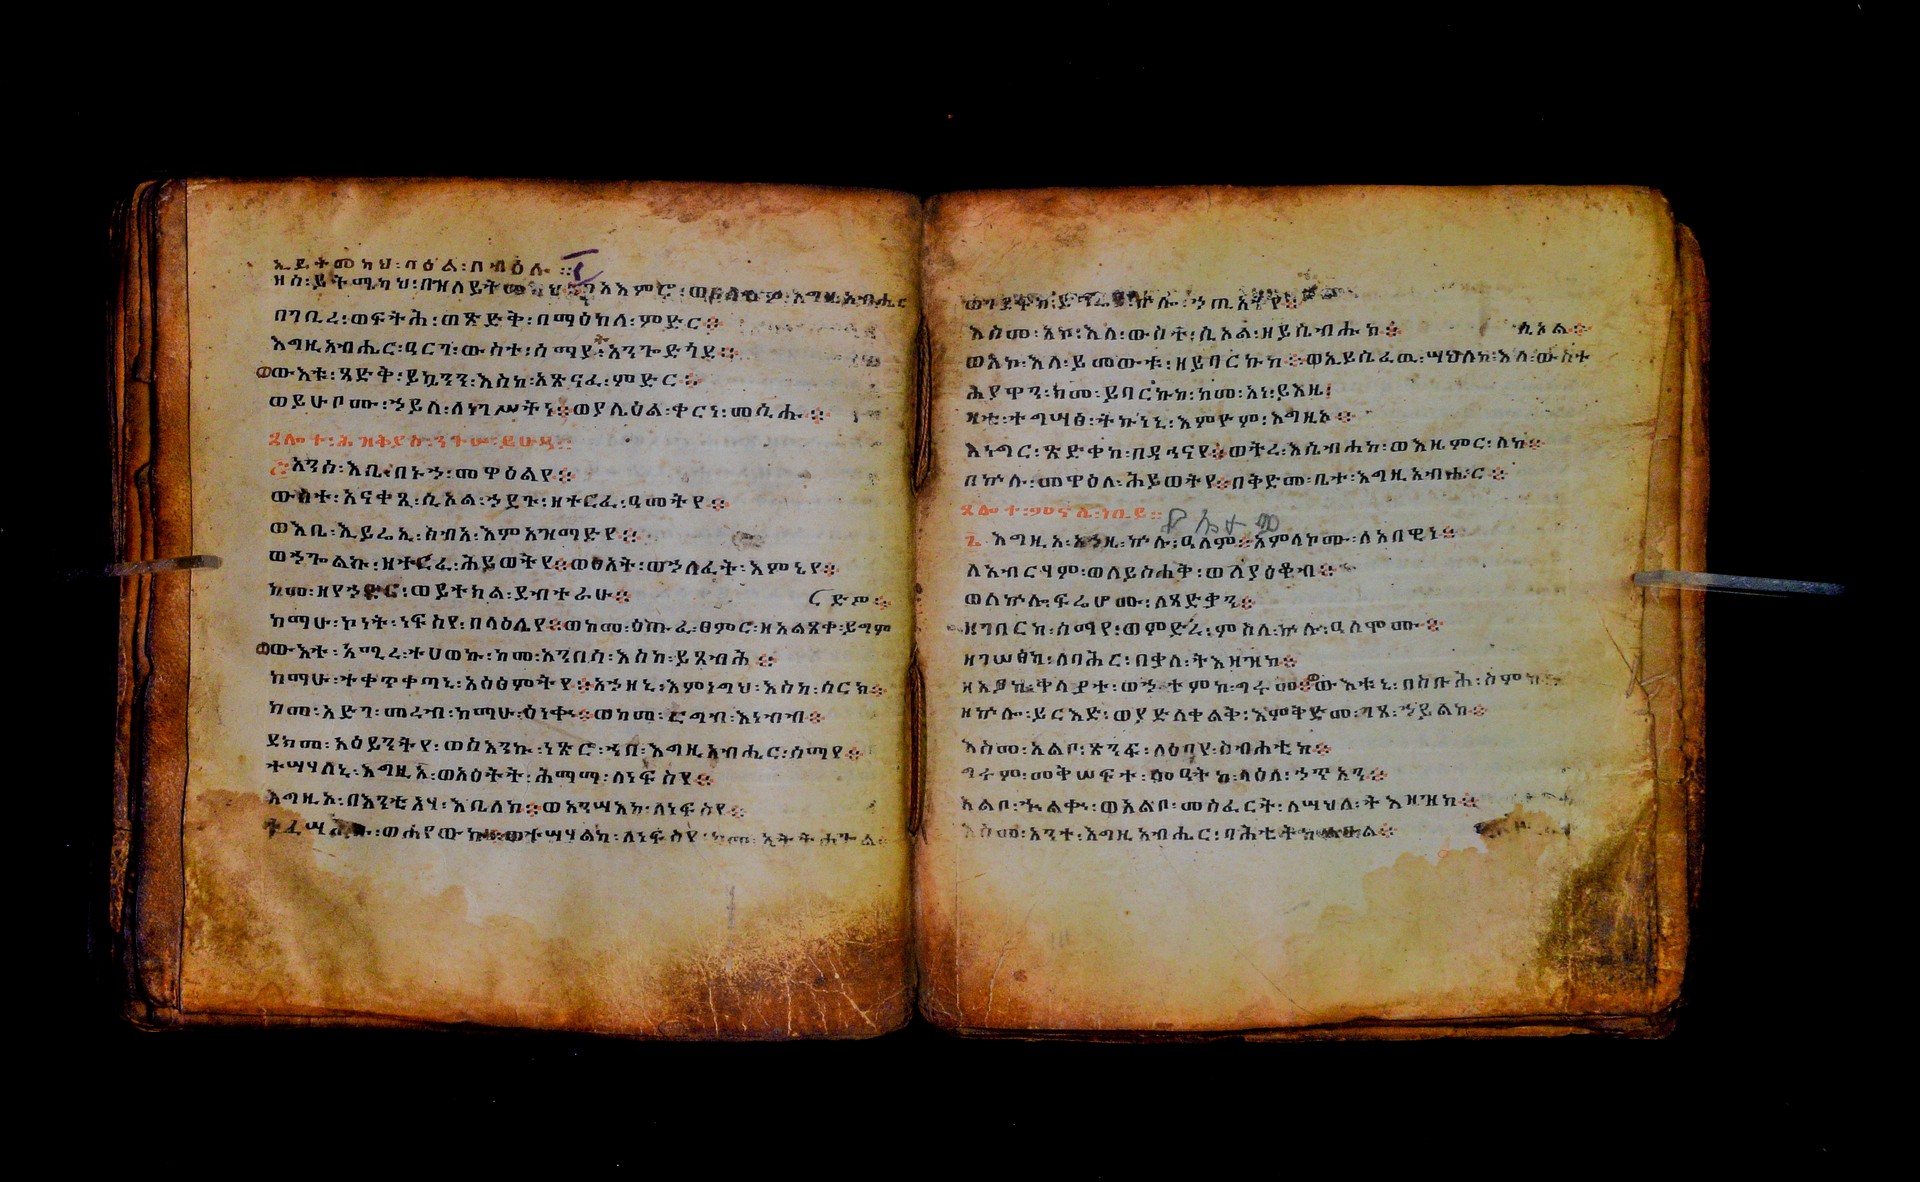 ኢይትመካህ፡ባዕል፡በብዕሉ።
ዘሰ፡ይትሜካህ፡በዝ፡ለይትመካህ፡
በገቢረ፡ወፍትሕ፡ወጽድቅ፡በማዕከለ፡ምድር።
እግዚአብሔር፡ዓርገ፡ውስተ፡ሰማይ፡አንጐድጓደ።
ውእቱ፡ጻድቅ፡ይኴንን፡እስከ፡አጽናፈ፡ምድር።
ወይሁቦሙ፡ኃይለ፡ለነገሥትነ።ወያሌዕል፡ቀርነ፡መሲሑ።
ጸሎተ፡ሕዝቅያስ፡ንጉሠ፡ይሁዳ።
አንሰ፡እቤ፡በኑኀ፡መዋዕልየ።
ውስተ፡አናቀጺ፡ሲኦል፡ኃደጉ፡ዘተርፈ፡ዓመትየ።
ወእቤ፡ኢይሬኢ፡ሰብአ፡እምአዝማድየ።
ወኀጐልኩ፡ዘተርፈ፡ሕይወትየ።ወፀአት፡ወኃለፈት፡እምኔየ።
ከመ፡ዘየኃድር፡ወይተክል፡ደብተራሁ።
ከማሁ፡ኮነት፡ነፍስየ፡በላዕሌየ።ወከመ፡ዕጡፈ፡ፀምር፡ዘአልጸቀ፡ይግም
ርድም።
ውእተ፡አሚረ፡ተሀወኩ፡ከመ፡አንበሳ፡እስከ፡ይጸብሕ።
ከማሁ፡ተቀጥቀጣኒ፡አዕፅምትየ።አኃዘኒ፡እምነግህ፡እስከ፡ሰርክ።
ከመ፡አድገ፡መረብ፡ከማሁ፡ዕነቁ።ወከመ፡ርግብ፡እነብብ።
ደክመ፡አዕይንትየ፡ወስእንኩ፡ነጽሮ፡ኀበ፡እግዚአብሔር፡ሰማየ።
ተሣሃለኒ፡እግዚአ፡ወአዕትት፡ሕማማ፡ለነፍስየ።
እግዚአ፡በእንቲአሃ፡እቤለከ።ወአንሣእከ፡ለነፍስየ።
ወሐየውኩ።ወተሣሃልከ፡ለነፍስየ፡ከመ፡ኢትትሐጐል።
ኵሎ፡ኃጢአትየ።
እስመ፡አኮ፡እለ፡ውስተ፡ሲኦል፡ዘይሴብሑከ።
ወአኮ፡እለ፡ይመውቱ፡ዘይባርኩከ።ወኢይሴፈዉ፡ሣህለከ፡እለ፡ውስተ
ሲኦል።
ሕያዋን፡ከመ፡ይባርኩከ፡ከመ፡አነ፡ይእዜ፤
ዛቲ፡ተግሣፀ፡ትኴንኒ፡እምዮም፡እግዚአ።
እነግር፡ጽድቀከ፡በዳኅናየ።ወትረ፡እሴብሐከ፡ወእዜምር፡ለከ።
በኵሉ፡መዋዕለ፡ሕይወትየ።በቅድመ፡ቤተ፡እግዚአብሔር።
ጸሎተ፡ምናሴ፡ነቢይ።
እግዚአ፡አኃዜ፡ኵሉ፡ዓለም።አምላኮሙ፡ለአበዊነ።
ለአብርሃም፡ወለይስሐቅ፡ወለያዕቆብ።
ወለኵሉ፡ፍሬሆሙ፡ለጻድቃን።
ዘገበርከ፡ሰማየ፡ወምድረ፡ምስለ፡ኵሉ፡ዓለሞሙ።
ዘገሠፅካ፡ለባሕር፡በቃለ፡ትእዛዝከ።
ዘአዖከ፡ቀላያተ፡ወኀተምከ፡ግሩመ።ውእቱኒ፡በስቡሕ፡ስምከ።
ዘኵሎ፡ይርእድ፡ወያድለቀልቅ፡እምቅድመ፡ገጸ፡ኃይልከ።
እስመ፡አልቦ፡ጽንፍ፡ለዕበየ፡ስብሐቲከ።
ግሩም፡መቅሠፍተ፡መዓትከ፡ላዕለ፡ኃጥአን።
አልቦ፡ኈልቈ፡ወአልቦ፡መስፈርት፡ለሣህለ፡ትእዛዝከ።
እስመ፡አንተ፡እግዚአብሔር፡ባሕቲትከ፡ልዑል።